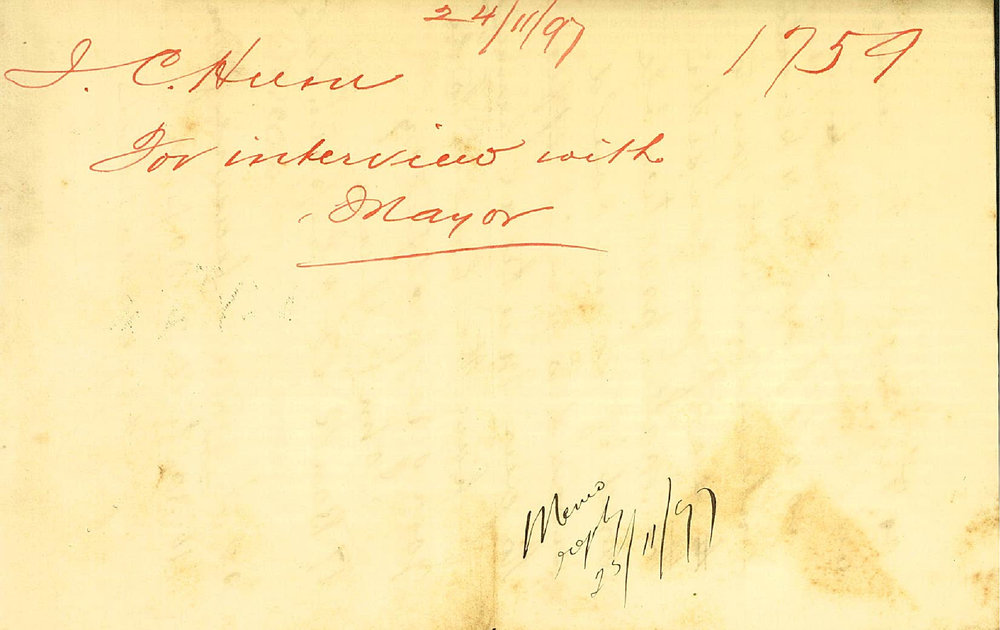 24/11/97
1759
J. C. Hunn
For interview with
Mayor
Memo
reply
25/11/97